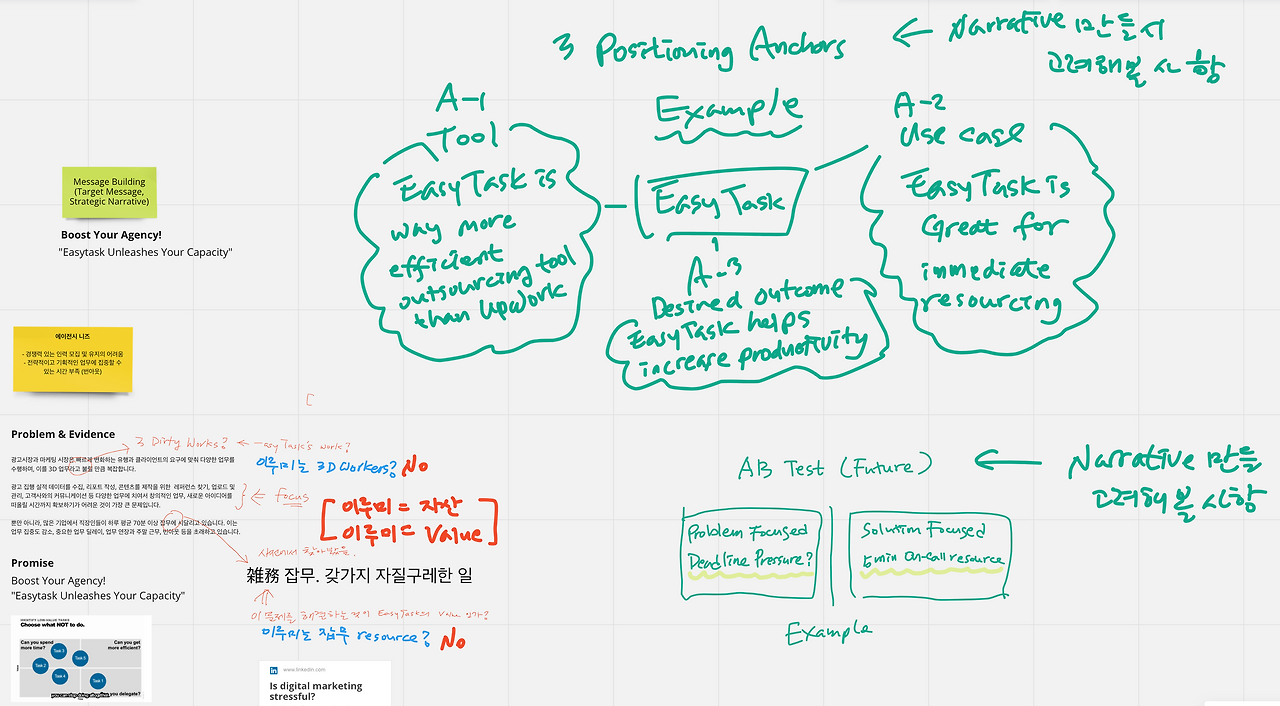 3 Positioning Anchors
← Narrative 만들시
고려해볼 사항
A-1
Tool
EasyTask is
way more
efficient
outsourcing tool
than upwork
Example
EasyTask
A-2
Use case
EasyTask is
Great for
immediate
resourcing
A-3
Desired outcome
EasyTask helps
increase productivity
Message Building
(Target Message,
Strategic Narrative)
Boost Your Agency!
"Easytask Unleashes Your Capacity"
에이전시 니즈
- 경쟁력 있는 인력 모집 및 유지의 어려움
- 전략적이고 기획적인 업무에 집중할 수
있는 시간 부족 (번아웃)
Problem & Evidence
3 Dirty Works? ← EasyTask's work?
광고시장과 마케팅 시장은 빠르게 변화하는 유행과 클라이언트의 요구에 맞춰 다양한 업무를
수행하며, 이를 3D 업무라고 불릴 만큼 복잡합니다.
이루미는 3D Workers? No
광고 집행 실적 데이터를 수집, 리포트 작성, 콘텐츠 제작을 위한 레퍼런스 찾기, 업로드 및
관리, 고객사와의 커뮤니케이션 등 다양한 업무에 치여서 창의적인 업무, 새로운 아이디어를
떠올릴 시간까지 확보하기가 어려운 것이 가장 큰 문제입니다.
← Focus
이루미 = 자산
이루미 = Value
뿐만 아니라, 많은 기업에서 직장인들이 하루 평균 70분 이상 잡무에 시달리고 있습니다. 이는
업무 집중도 감소, 중요한 업무 딜레이, 업무 연장과 주말 근무, 번아웃 등을 초래하고 있습니다.
사전에서 찾아보았음.
雑務 잡무. 갖가지 자질구레한 일
이 문제를 해결하는 것이 EasyTask의 Value 인가?
이루미는 잡무 resource? No
Promise
Boost Your Agency!
"Easytask Unleashes Your Capacity"
IDENTIFY LOW-VALUE TASKS
Choose what NOT to do.
Can you spend
more time?
Can you get
more efficient?
Task 3
Task 5
Task 2
Task 4
Task 1
you delegate?
www.linkedin.com
Is digital marketing
stressful?
AB Test (Future)
← Narrative 만들
고려해볼 사항
Problem Focused
Deadline Pressure?
Solution Focused
5min On-call resource
Example